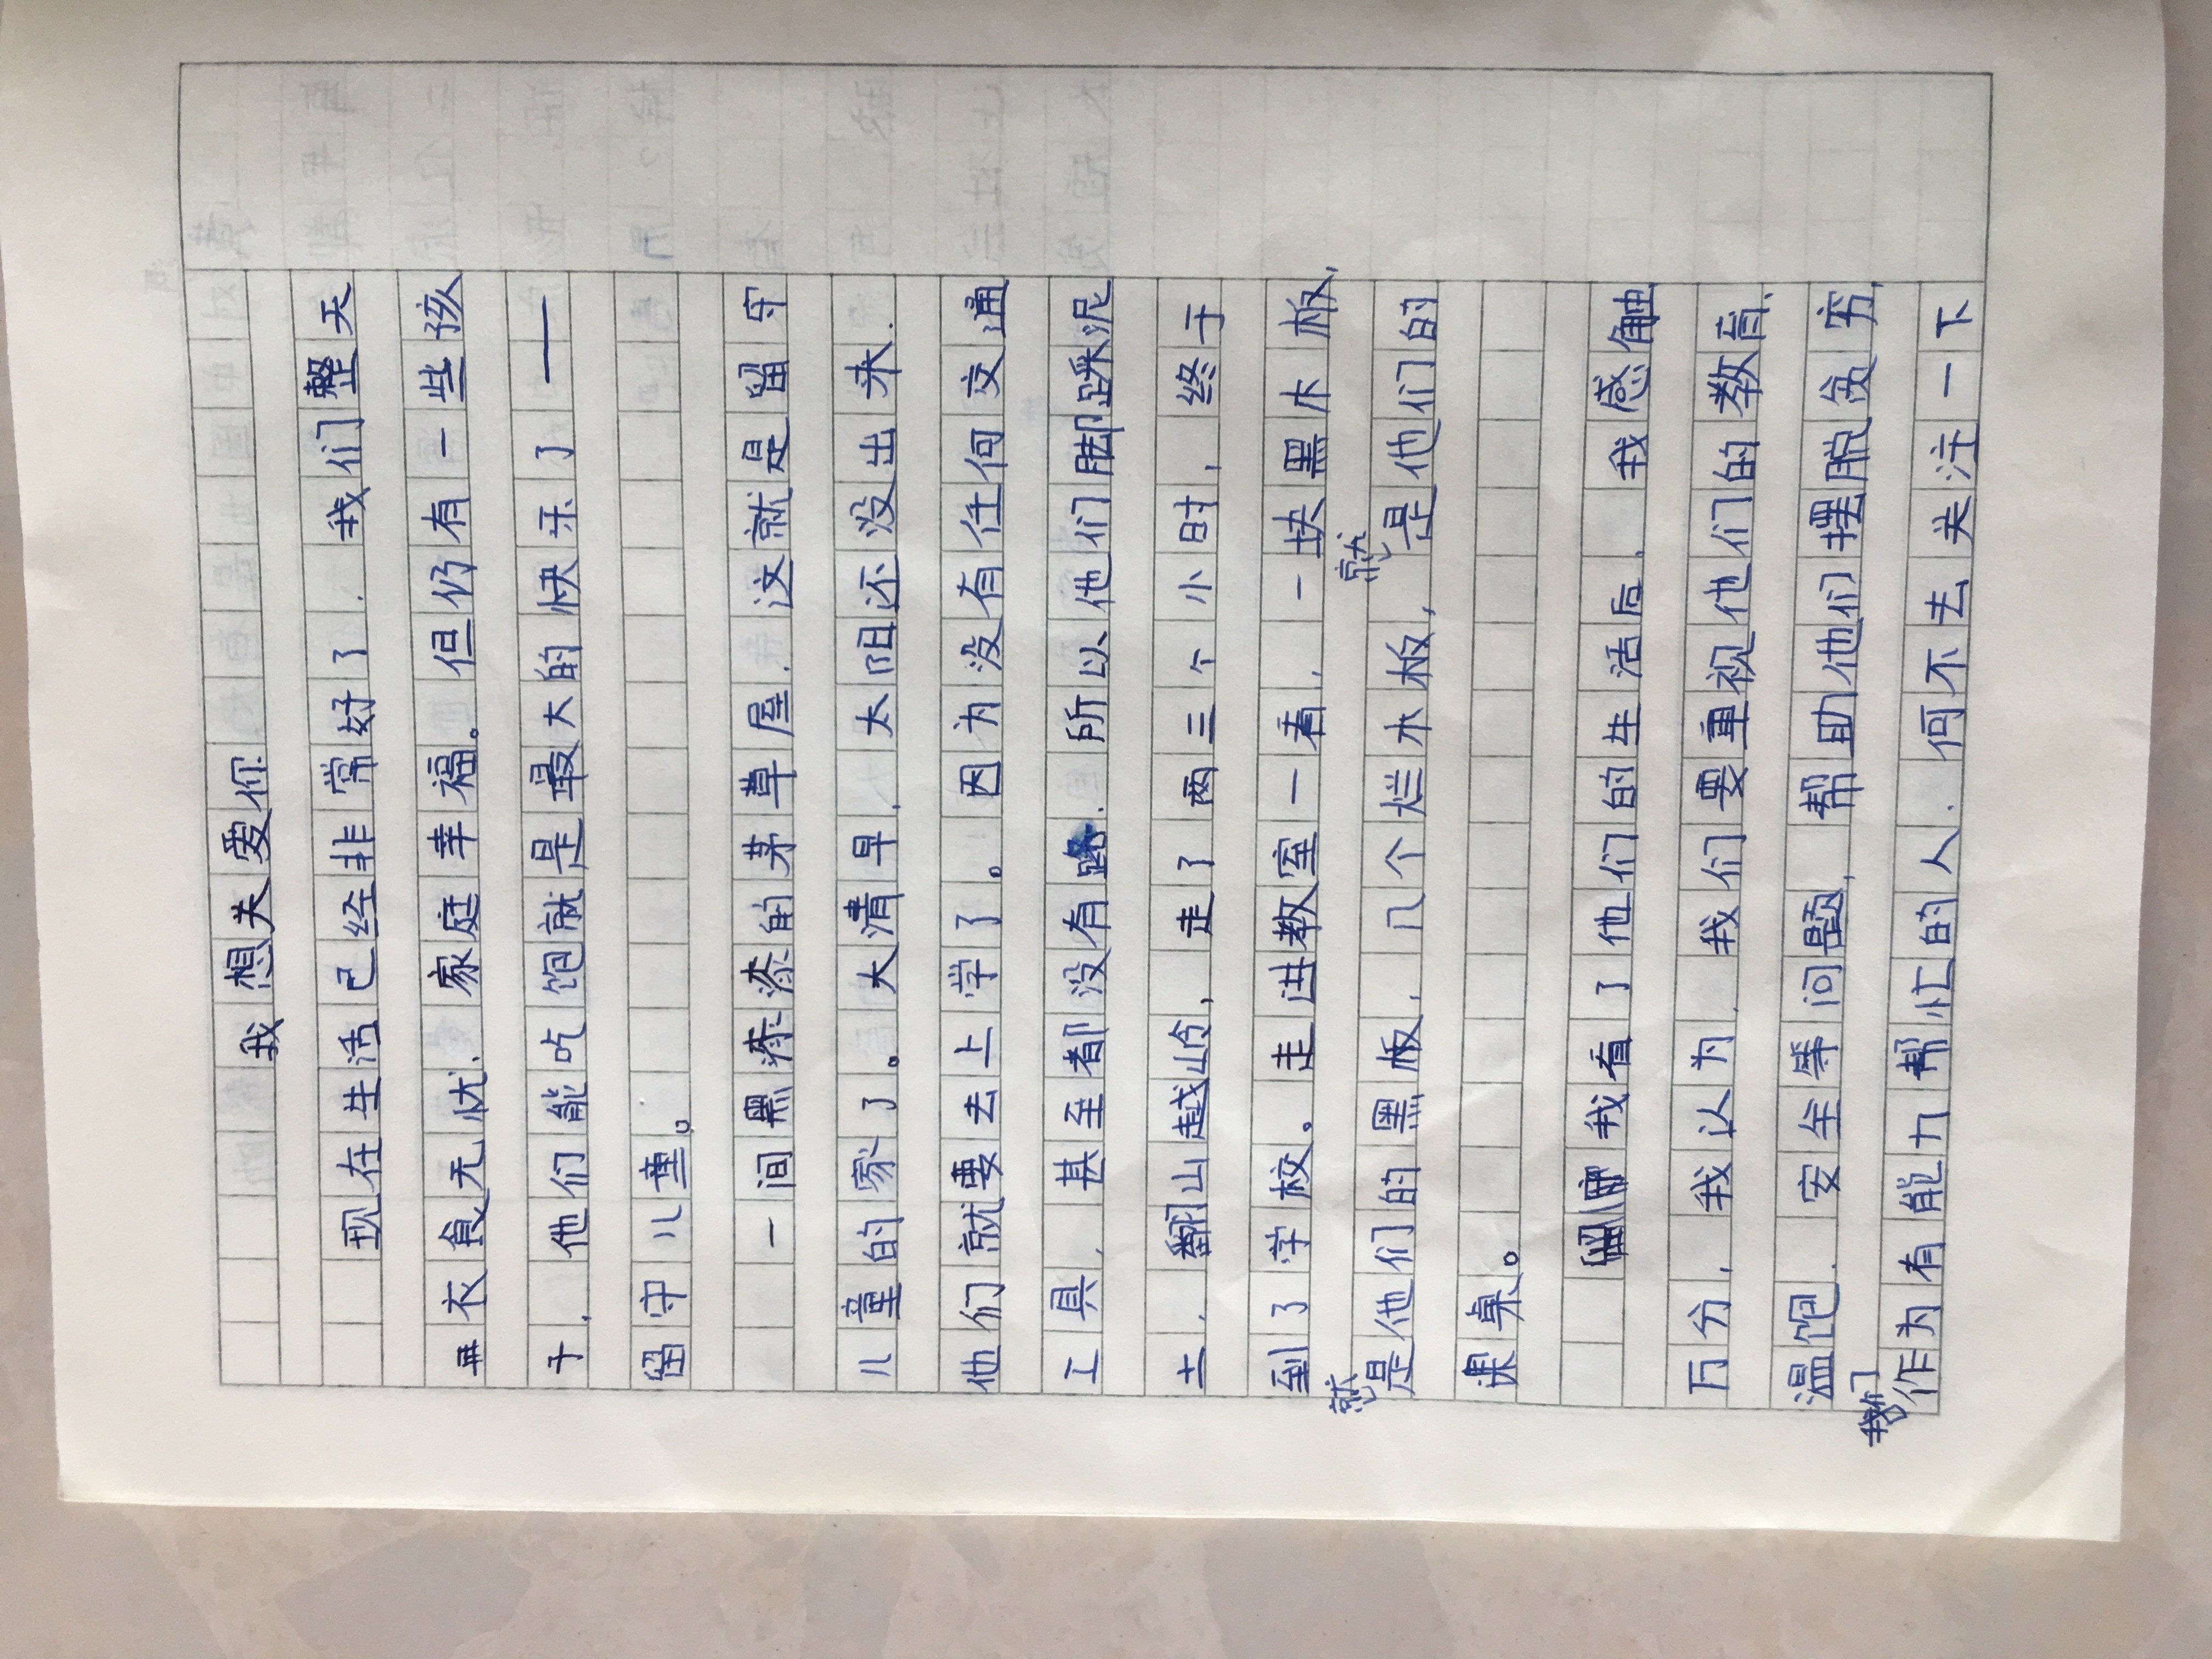 我想关爱你
现在生活已经非常好了.我们整天
衣食无忧.家庭幸福。但仍有一些孩
子.他们能吃饱就是最大的快乐了——
留守儿童。
一间黑漆漆的茅草屋.这就是留守
儿童的家了。大清早.太阳还没出来.
他们就要去上学了。因为没有任何交通
工具,甚至都没有路.所以他们脚踩泥
土.翻山越岭,走了两三个小时,终于
到了学校。走进教室一看,一块黑木板,
就是他们的黑板,几个烂木板,就是他们的
课桌。
我看了他们的生活后.我感触
万分,我认为.我们要重视他们的教育、
温饱.安全等问题,帮助他们摆脱贫穷,
我们作为有能力帮忙的人.何不去关注一下